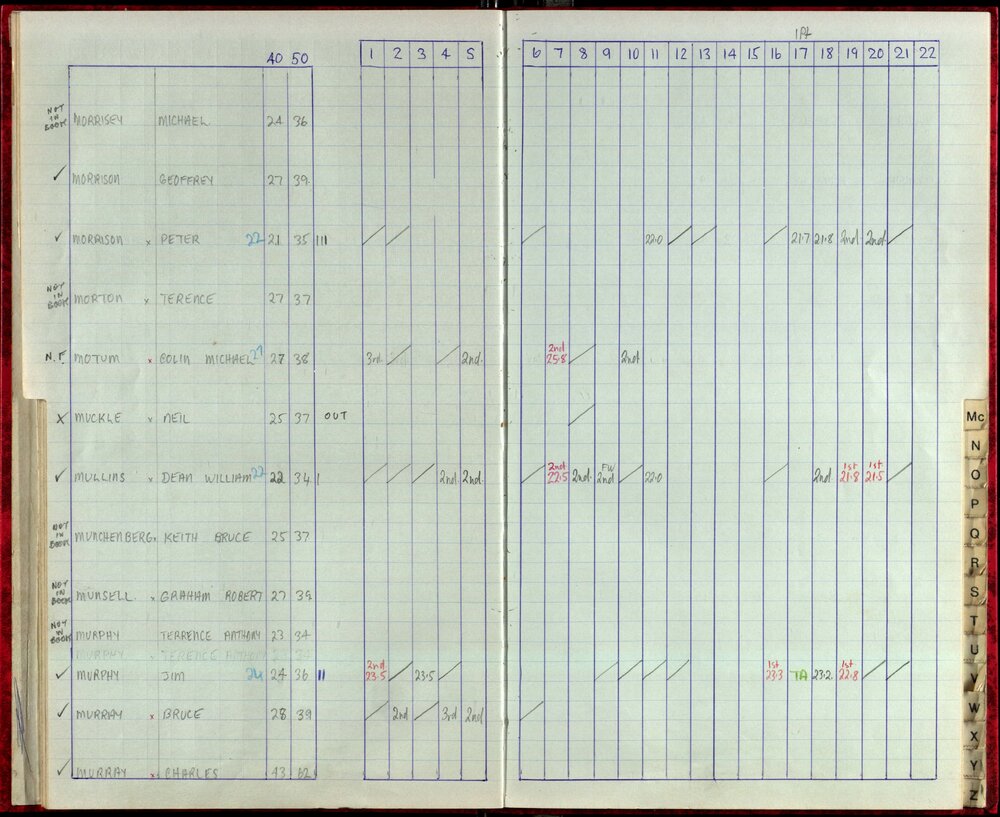 1 Pt
40 50 1 2 4 5 6 7 8 9 10 11 12 13 14 15 16 17 18 19 20 21 22
NOT IN BOOK MORRISEY MICHAEL 24 36
✓ MORRISON GEOFFREY 27 39
✓ MORRISON x PETER 22 21 35 III / / / 22.0 / / / 21.7 21.8 2nd 2nd /
NOT IN BOOK MORTON x TERENCE 27 37
N.F MOTUM x COLIN MICHAEL 27 27 38 3rd / / 2nd. 2nd 25.8 / 2nd
X MUCKLE x NEIL 25 37 OUT /
✓ MULLINS x DEAN WILLIAM 22 22 34 I / / / 2nd 2nd. / 2nd 22.5 2nd. FW 2nd / 22.0 / 2nd 1st 21.8 1st 21.5 /
NOT IN BOOK MUNCHENBERG x KEITH BRUCE 25 37
NOT IN BOOK MUNSELL x GRAHAM ROBERT 27 39
NOT IN BOOK MURPHY TERRENCE ANTHONY 23 34
MURPHY x TERENCE ANTHONY 23 34
✓ MURPHY JIM 24 24 36 II 2nd 23.5 / 23.5 / / / / / 1st 23.3 TA 23.2 1st 22.8 / /
✓ MURRAY x BRUCE 28 39 / 2nd / 3rd 2nd /
✓ MURRAY x CHARLES 43 62
Mc
N
O
P
Q
R
S
T
U
V
W
X
Y
Z